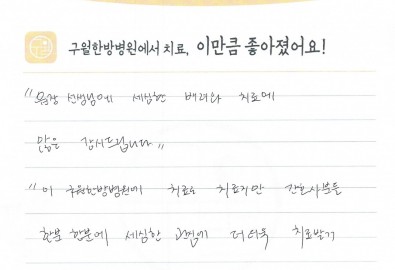 구월한방병원에서 치료, 이만큼 좋아졌어요!
"원장 선생님에 세심한 배려와 치료에
많은 감사드립니다"
"이 구월한방병원에 치료는 치료지만 간호사분들
한분 한분에 세심한 관심에 더더욱 치료받기